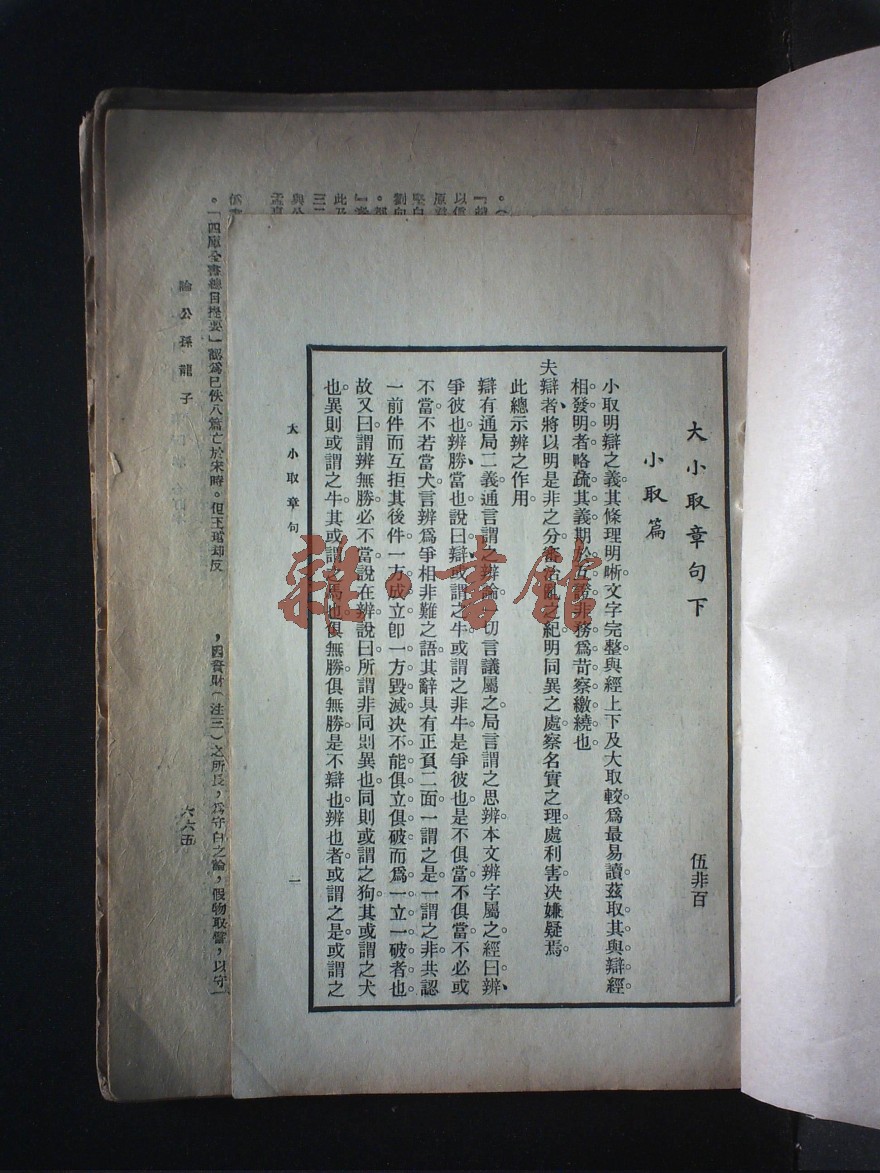 大小取章句下
伍非百
小取篇
小取明辯之義其條理明晰文字完整與經上下及大取較爲最易讀茲取其與辯經
相發明者略疏其義期於互證非務爲苛察繳繞也
夫辯者將以明是非之分審治亂之紀明同異之處察名實之理處利害决嫌疑焉
此總示辨之作用
辯有通局二義通言謂之辨論一切言議屬之局言謂之思辨本文辨字屬之經曰辨
爭彼也辨勝當也說曰辯或謂之牛或謂之非牛是爭彼也是不俱當不俱當不必或
不當不若當犬言辨爲爭相非難之語其辭具有正負二面一謂之是一謂之非共認
一前件而互拒其後件一方成立卽一方毀滅决不能俱立俱破而爲一立一破者也
故又曰謂辨無勝必不當說在辨說曰所謂非同則異也同則或謂之狗其或謂之犬
也異則或謂之牛其或謂之馬也俱無勝俱無勝是不辯也辨也者或謂之是或謂之
大小取章句
一
雜書館
，四賽財（注三）之所長，爲守白之論，假物取譬，以守
。「四庫全書總目提要」認爲已佚八篇亡於宋時。但王琯却反
論公孫龍子
六六五